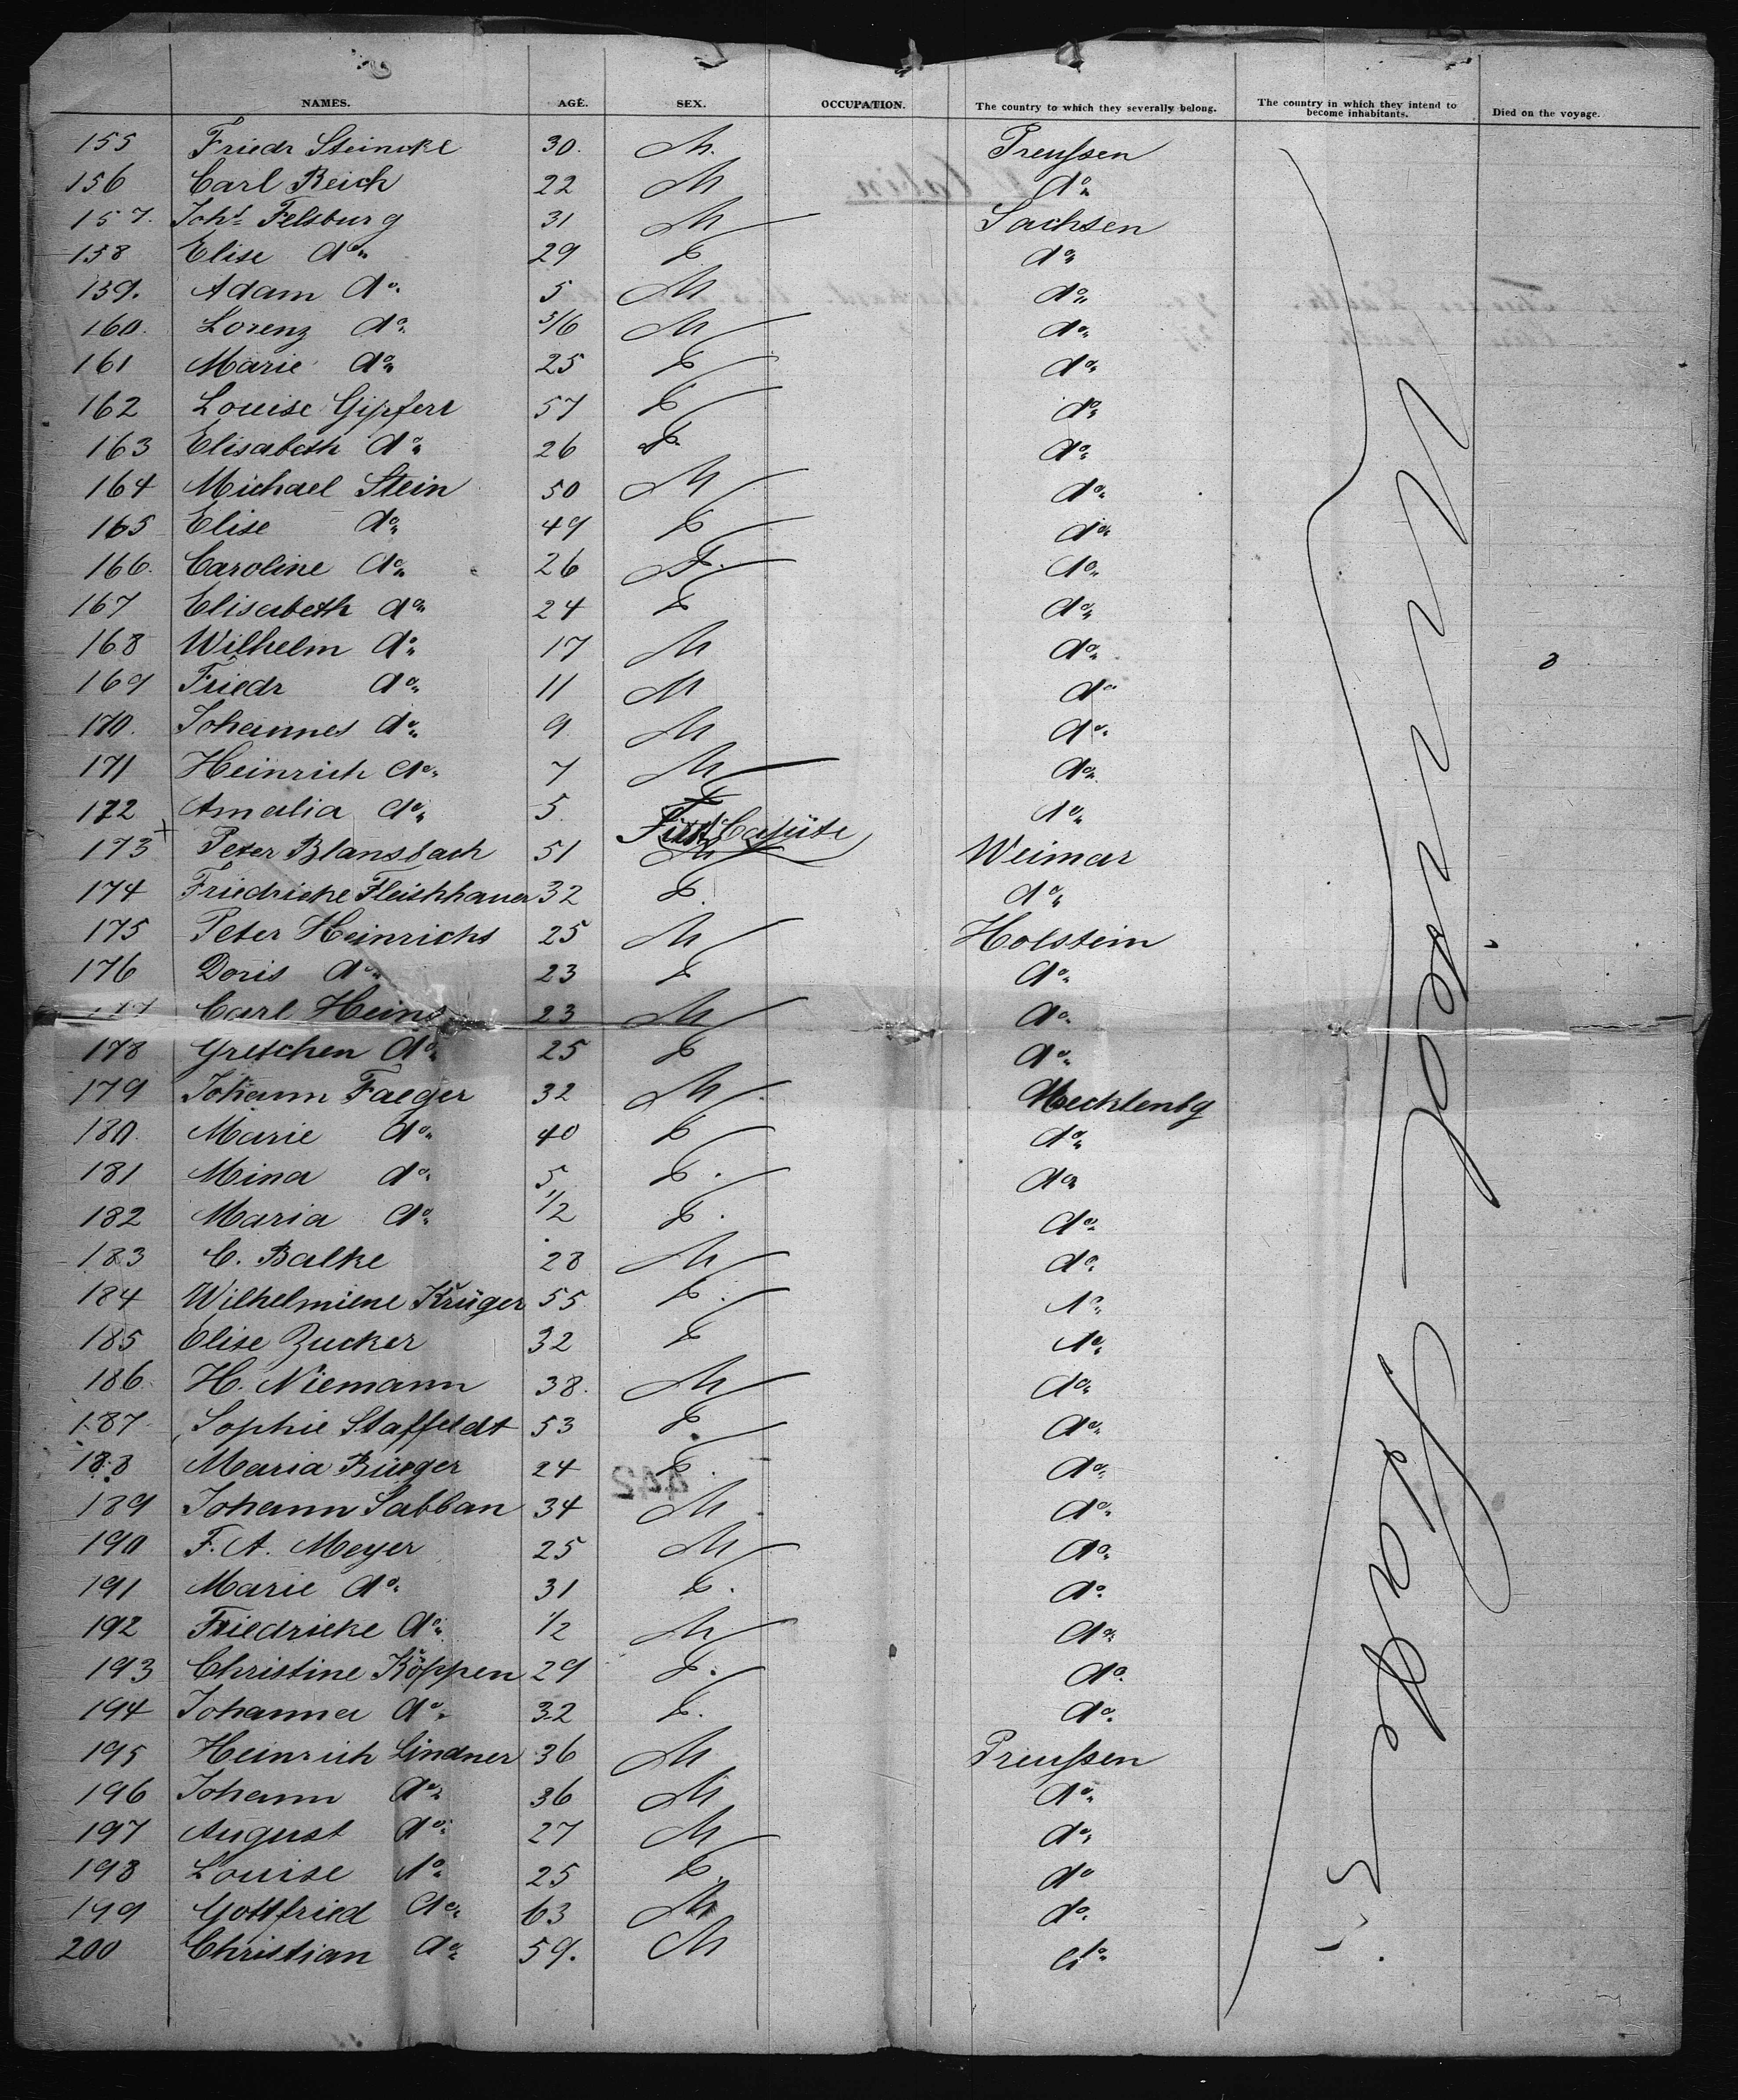 NAMES. AGE. SEX. OCCUPATION. The country to which they severally belong. The country in which they intend to become inhabitants. Died on the voyage.
155 Friedr Steincke 30. M. Preußen
156 Carl Reich 22 M do
157. Joht Felsburg 31 M Sachsen
158 Elise do 29 F do
159. Adam do 5 M do
160. Lorenz do 5/6 M do
161 Marie do 25 F do
162 Louise Gipfert 57 F do
163 Elisabeth do 26 F. do
164 Michael Stein 50 M do
165 Elise do 49 F do
166. Caroline do 26 F. do
167 Elisabeth do 24 F do
168 Wilhelm do 17 M do
169 Friedr do 11 M do
170. Johannes do 9. M do
171 Heinrich do 7 M do
172 Amalia do 5. F do
173 x Peter Blansbach 51 M Weimar
174 Friedricke Fleishhauer 32 F. do
175 Peter Heinrichs 25 M Holstein
176 Doris do 23 F do
Carl Heins 23 M do
178 Gretchen do 25 F do
179 Johann Faeger 32 M. Mecklenbg
180. Marie do 40 F do
181 Mina do 5 F. do
182 Maria do 1/2 F. do
183 C. Balke 28 M do
184 Wilhelmiene Krüger 55 F. do
185 Elise Zucker 32 F do
186. H. Niemann 38. M do
187 Sophie Staffeldt 53 F. do
188 Maria Bürger 24 F. do
189 Johann Sabban 34 M. do
190 F. A. Meyer 25 M do
191 Marie do 31 F. do
192 Friedricke do 1/2 M do
193 Christine Köppen 29 F. do
194 Johanna do 32 F. do
195 Heinrich Lindner 36 M Preußen
196 Johann do 36 M do
197 August do 27 M do
198 Louise do 25 F. do
199 Gottfried do 63 M do
200 Christian do 59. M do